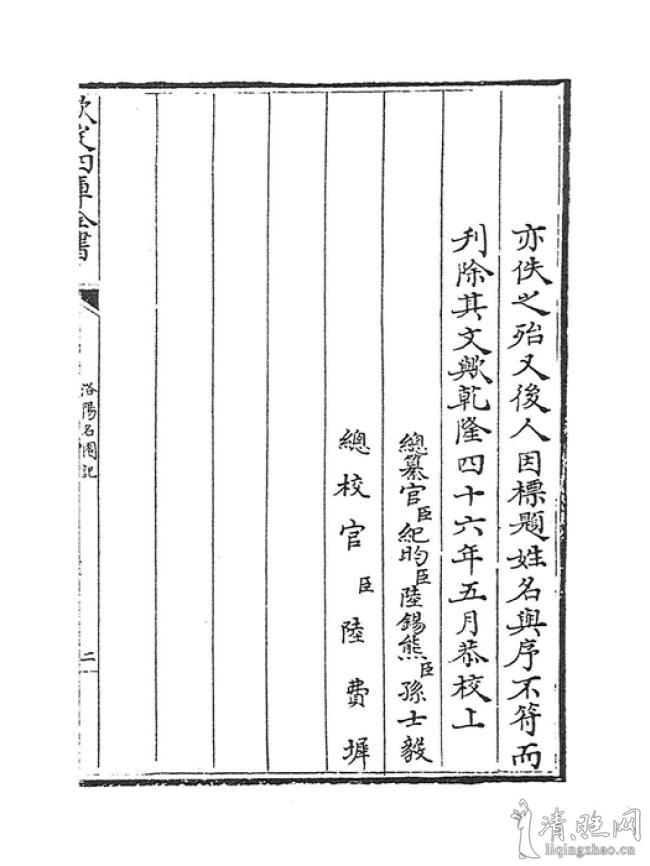 亦佚之殆又後人因標題姓名與序不符而
刋除其文歟乾隆四十六年五月恭校上
總纂官臣紀昀臣陸錫熊臣孫士毅
總校官臣陸費墀
欽定四庫全書
洛陽名園記
二
清照网
liqingzhao.cn